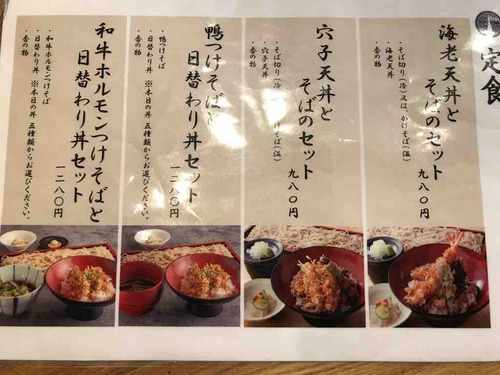 定食
海老天丼と
そばのセット
九八〇円
・そば切り(冷)又は、かけそば(温)
・海老天丼
・香の物
穴子天丼と
そばのセット
九八〇円
・そば切り(冷)
かけそば(温)
・穴子天丼
・香の物
鴨つけそばと
日替わり丼セット
一二八〇円
・鴨つけそば
・日替わり丼 ※本日の丼 五種類からお選びください。
・香の物
和牛ホルモンつけそばと
日替わり丼セット
一二八〇円
・和牛ホルモンつけそば
・日替わり丼 ※本日の丼 五種類からお選びください。
・香の物